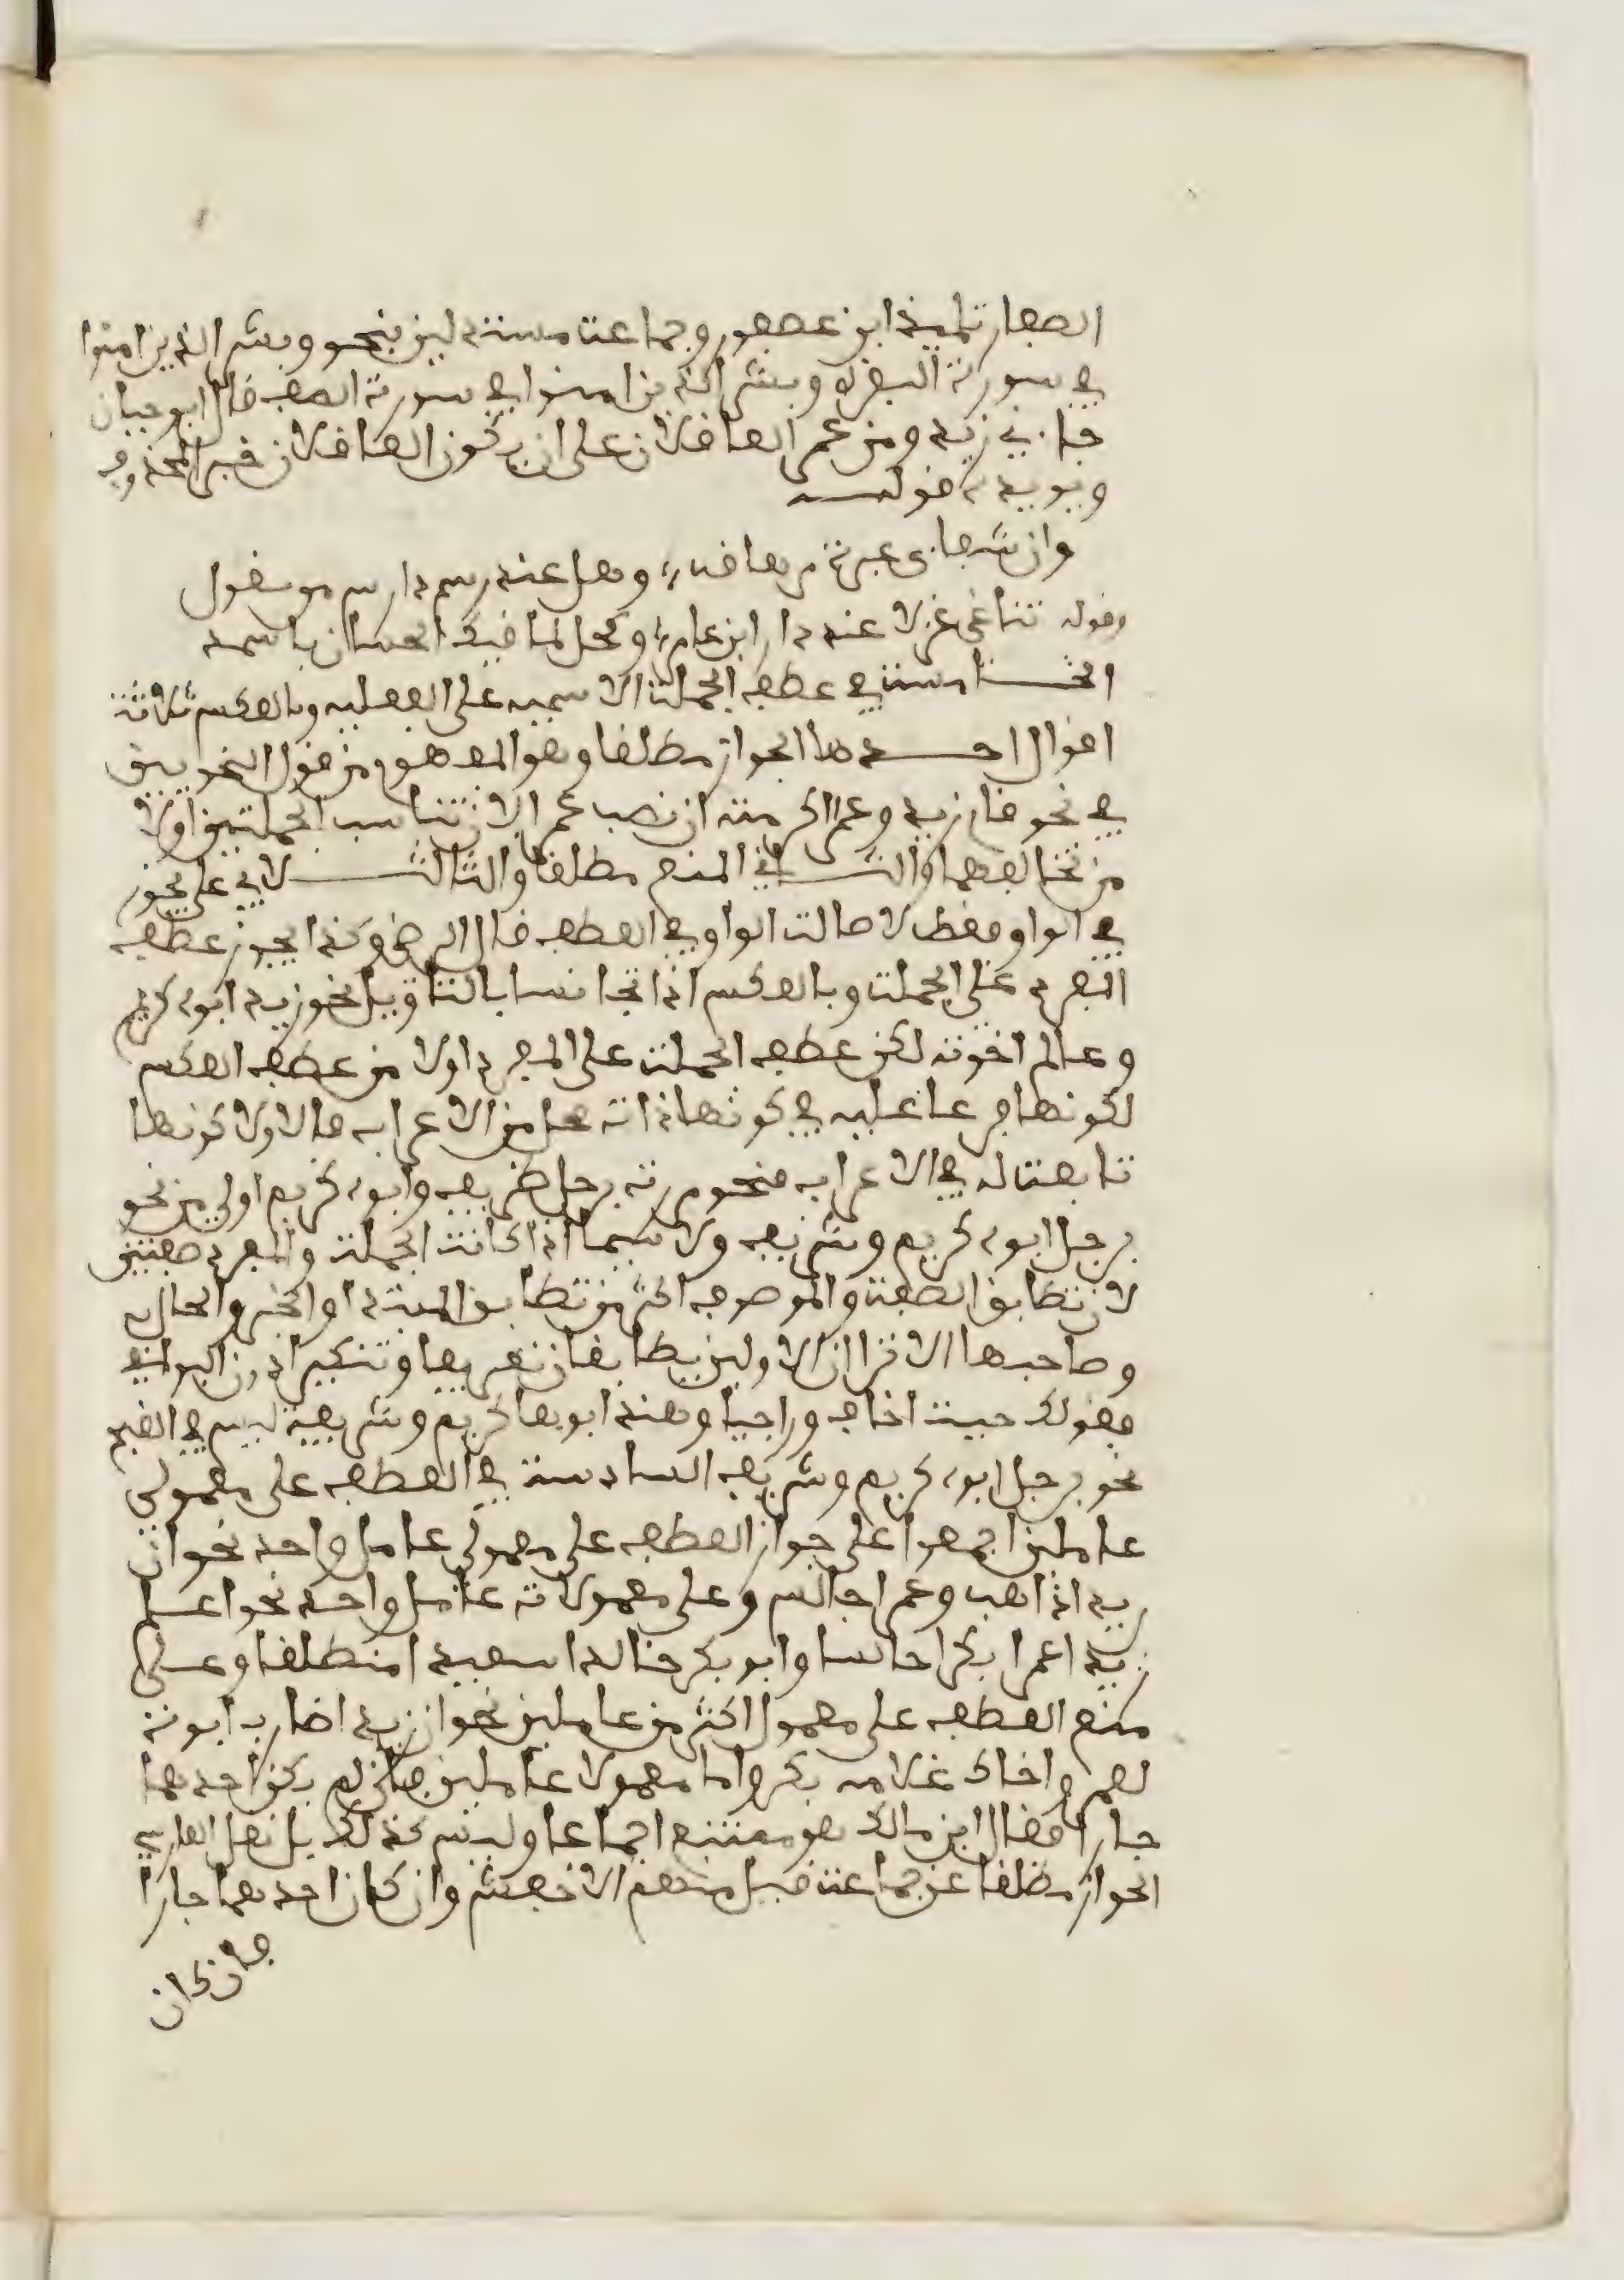 الصفار تلميذ ابن عصفور وجماعة مستدلين بنحو وبشر الذين امنوا
في سورة البقرة وبشر الذين امنوا في سورة الصف قال ابو حيان
جاءني زيد ومن عمرو العاقلان على ان يكون العاقلان خبر المحذوف
ويويده قولـــه
وان شفاءى عبرة مهراقة وهل عند رسم دارس من معول
وقوله تناغى غزلا عند دار ابن عامر وكحل لماقيك الحسان باثمد
الخـــامسة في عطف الجملة الاسمية على الفعليه وبالعكس ثلاثة
اقوال احــدها الجواز مطلقا وهو المفهوم من قول النحويين
في نحو قام زيد وعمرا اكرمته ان نصب عمرا لان تناسب الجملتين اولا
من تخالفهما والثـــاني المنع مطلقا والثالثـــ لابي على يجوز
في الواو فقط لاصالة الواو في العطف قال الرضى وكذا يجوز عطف
المفرد على الجملة وبالعكس اذا تجانسا بالتاويل نحو زيد ابوه كريم
وعالم اخوته لكن عطف الجملة على المفرد اولا من عطف العكس
لكونها فرعا عليه في كونها ذات محل من الاعراب فالاولا كونها
تابعة له في الاعراب فنحو مررت برجل ظريف وابوه كريم اولى من نحو
برجل ابوه كريم وشريف ولا سيما اذا كانت الجملة والمفرد صفتين
لان تطابق الصفة والموصوف اكثر من تطابق المبتدا والخبر والحال
وصاحبها الا ترا ان الاولين يطابقان تعريفا وتنكيرا دون البواقى
فقولك حييت اخاف وراجيا وهند ابوها كريم وشريفة ليس في القبح
نحو برجل ابوه كريم وشريف السادسة في العطف على معمولى
عاملين اجمعوا على جواز العطف على معمولى عامل واحد نحو ان
زيدا ذاهب وعمرا جالس وعلى معمولات عامل واحد نحو اعلم
زيدا عمرا بكرا جالسا وابو بكر خالدا سعيدا منطلقا وعلى
منع العطف على معمول اكثر من عاملين نحو ان زيدا ضارب ابوته
لعمرو واخاك غلامه بكر واما معمولا عاملين فان لم يكن احدهما
جارا فقال ابن مالك هو ممتنع اجماعا وليس كذلك بل نقل الفارسي
الجواز مطلقا عن جماعة فيل منهم الاخفش وان كان احدهما جارا
فان كان